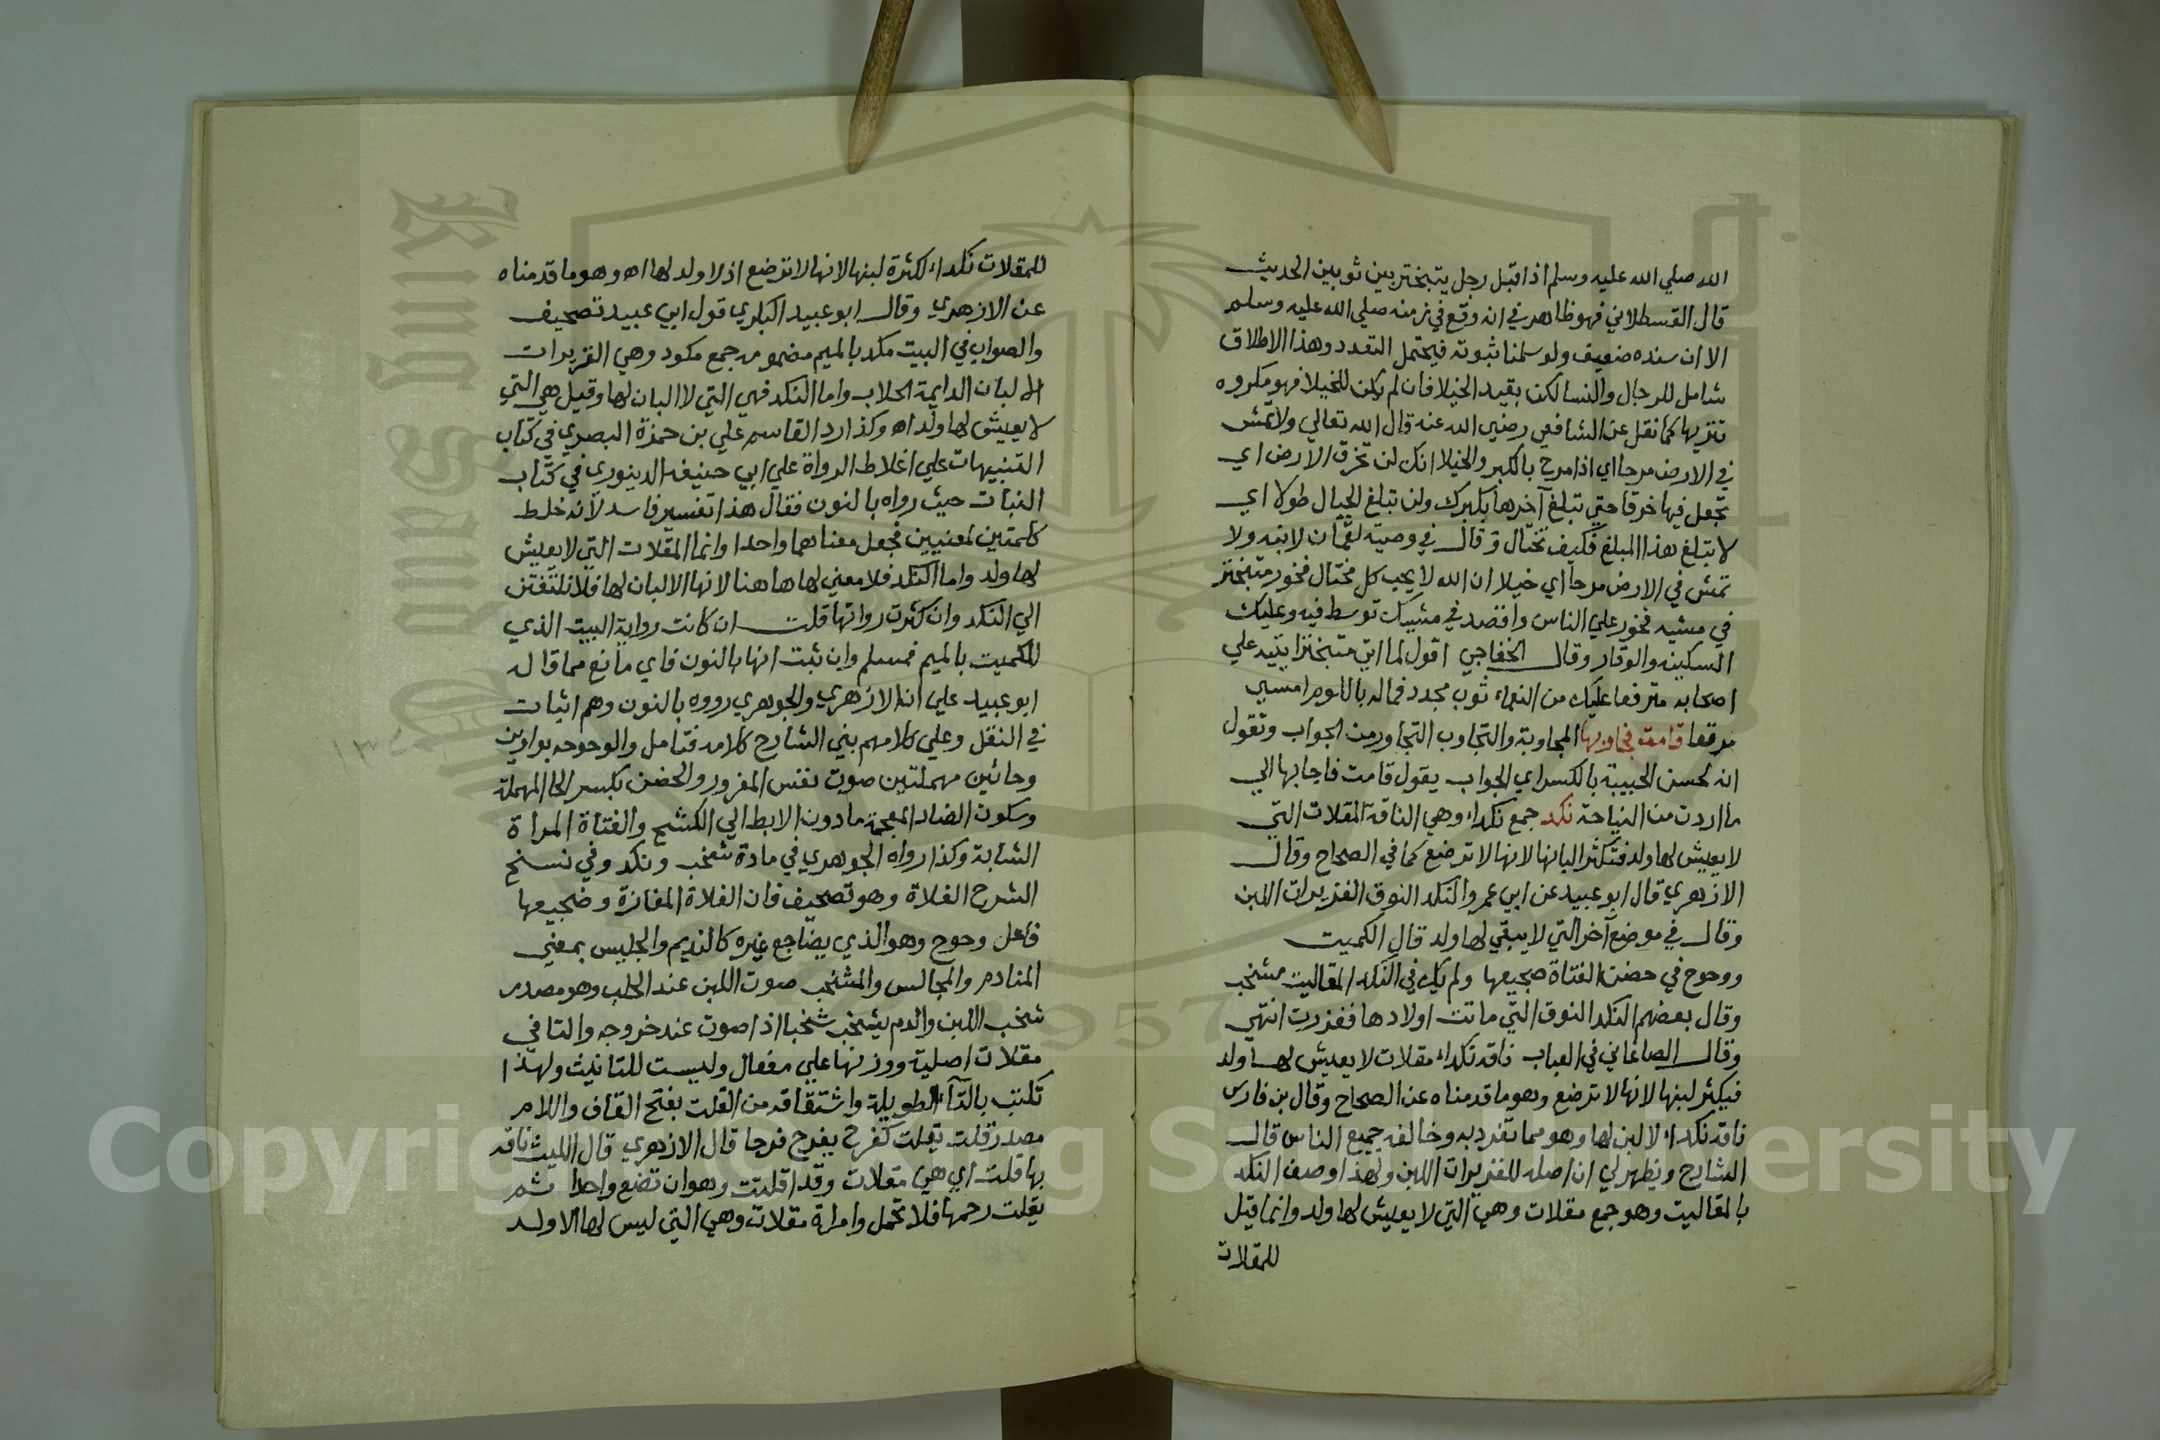 الله صلي الله عليه وسلم اذا قبل رجل يتبختر بين ثوبين الحديث
قال القسطلاني فهو ظاهر في انه وقع في زمنه صلي الله عليه وسلم
الا ان سنده ضعيف ولو سلمنا ثبوته فيحتمل التعدد وهذا الاطلاق
شامل للرجال والنسا لكن بقيد الخيلا فان لم يكن للخيلا فهو مكروه
تنزيها كما نقل عن الشافعي رضي الله عنه قال الله تعالي ولا تمش
في الارض مرحا اي اذا مرح بالكبر والخيلا انك لن تخرق الارض اي
تجعل فيها خرقا حتي تبلغ آخرها بكبرك ولن تبلغ الجبال طولا اي
لا تبلغ هذا المبلغ فكيف تختال وقال في وصية لقمان لابنه ولا
تمش في الارض مرحا اي خيلا ان الله لا يحب كل مختال فخور متبختر
في مشيه فخور علي الناس واقصد في مشيك توسط فيه وعليك
السكينه والوقار وقال الخفاجي اقول لما اتي متبخترا يتيه علي
اصحابه مترفعا عليك من النعماء ثوب مجدد فماله باللوم امسي
مرقعا قامت فجاوبها المجاوبة والتجاوب التجاور من الجواب وتقول
انه لحسن الجيبة بالكسر اي الجواب يقول قامت فاجابها الي
ما اردت من النياحة نكد جمع نكداء وهي الناقة المقلات التي
لا يعيش لها ولد فتكثر البانها لانها لا ترضع كما في الصحاح وقال
الازهري قال ابو عبيد عن ابي عمرو النكد النوق الغزيرات اللبن
وقال في موضع آخر التي لا يبقي لها ولد قال الكميت
ووحوح في حضن الفتاة ضجيعها ولم يك في النكد المقاليت مشخب
وقال بعضهم النكد النوق التي ماتت اولادها فغزرت انتهي
وقال الصاغاني في العباب ناقه نكداء مقلات لا يعيش لها ولد
فيكثر لبنها لانها لا ترضع وهو ما قدمناه عن الصحاح وقال بن فارس
ناقه نكداء لا لبن لها وهو مما تفرد به وخالفه جميع الناس قال
الشارح ويظهر لي ان اصله للغزيرات اللبن ولهذا وصف النكد
بالمقاليت وهو جمع مقلات وهي التي لا يعيش لها ولد وانما قيل
للمقلات
للمقلات نكداء لكثرة لبنها لانها لا ترضع اذ لا ولد لها اه وهو ما قدمناه
عن الازهري وقال ابو عبيد البكري قول ابي عبيد تصحيف
والصواب في البيت مكد بالميم مضمومه جمع مكود وهي الغزيرات
الالبان الدايمة الحلاب واما النكد فهي التي لا البان لها وقيل هي التي
لا يعيش لها ولد اه وكذا رد القاسم علي بن حمزة البصري في كتاب
التنبيهات علي اغلاط الرواة علي ابي حنيفه الدينوري في كتاب
النبات حيث رواه بالنون فقال هذا تفسير فاسد لانه خلط
كلمتين لمعنيين فجعل معناهما واحدا وانما المقلات التي لا يعيش
لها ولد واما النكد فلا معني لها هاهنا لانها لا البان لها فلا تلتفتن
الي النكد وان كثرت رواتها قلت ان كانت رواية البيت الذي
للكميت بالميم فمسلم وان ثبت انها بالنون فاي مانع مما قاله
ابو عبيد علي ان الازهري والجوهري رووه بالنون وهم اثبات
في النقل وعلي كلامهم بني الشارح كلامه فتامل والوحوحه بواوين
وحائين مهملتين صوت نفس المقرور والحضن بكسر الحا المهملة
وسكون الضاد المعجمة ما دون الابط الي الكشح والفتاة المراة
الشابة وكذا رواه الجوهري في مادة شخب ونكد وفي نسخ
الشرح الفلاة وهو تصحيف فان الفلاة المفازة وضجيعها
فاعل وحوح وهو الذي يضاجع غيره كالنديم والجليس بمعني
المنادم والمجالس والمشخب صوت اللبن عند الحلب وهو مصدر
شخب اللبن والدم يشخب شخبا اذا صوت عند خروجه والتا في
مقلات اصلية ووزنها علي مفعال وليست للتانيث ولهذا
تكتب بالتاء الطويلة واشتقاقه من القلت بفتح القاف واللام
مصدر قلت يقلت كفرح يفرح فرحا قال الازهري قال الليث ناقه
بها قلت اي هي مقلات وقد اقلتت وهو ان تضع واحدا ثم
يقلت رحمها فلا تحمل وامراة مقلات وهي التي ليس لها الا ولد
Copyright © King Saud University
King Saud University
1957